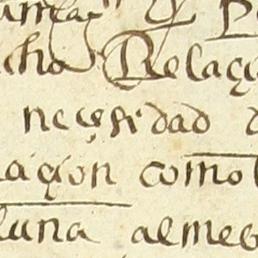 cho Relaç
neçesidad d
açion como
luna almeg